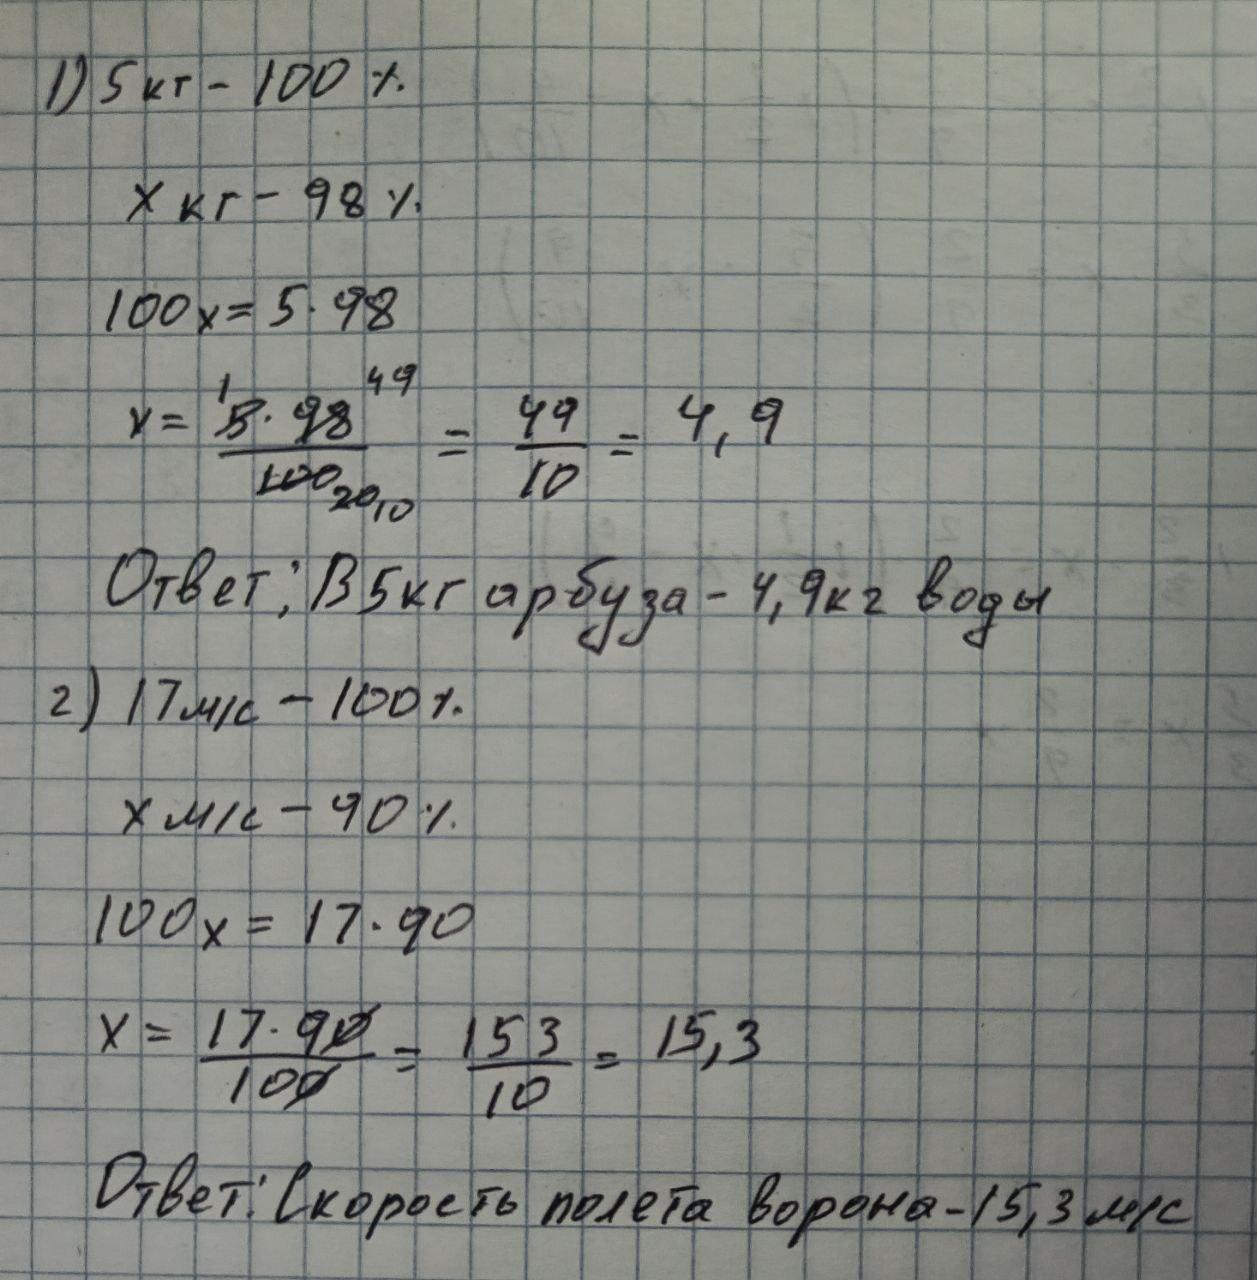 1) 5 кг - 100 %.
х кг - 98 %.
100х = 5 · 98
х = 5 · 98 / 100 = 49 / 10 = 4,9
1 49
20 10
Ответ: В 5 кг арбуза - 4,9 кг воды
2) 17 м/с - 100 %.
х м/с - 90 %.
100х = 17 · 90
х = 17 · 90 / 100 = 153 / 10 = 15,3
Ответ: Скорость полета ворона - 15,3 м/с